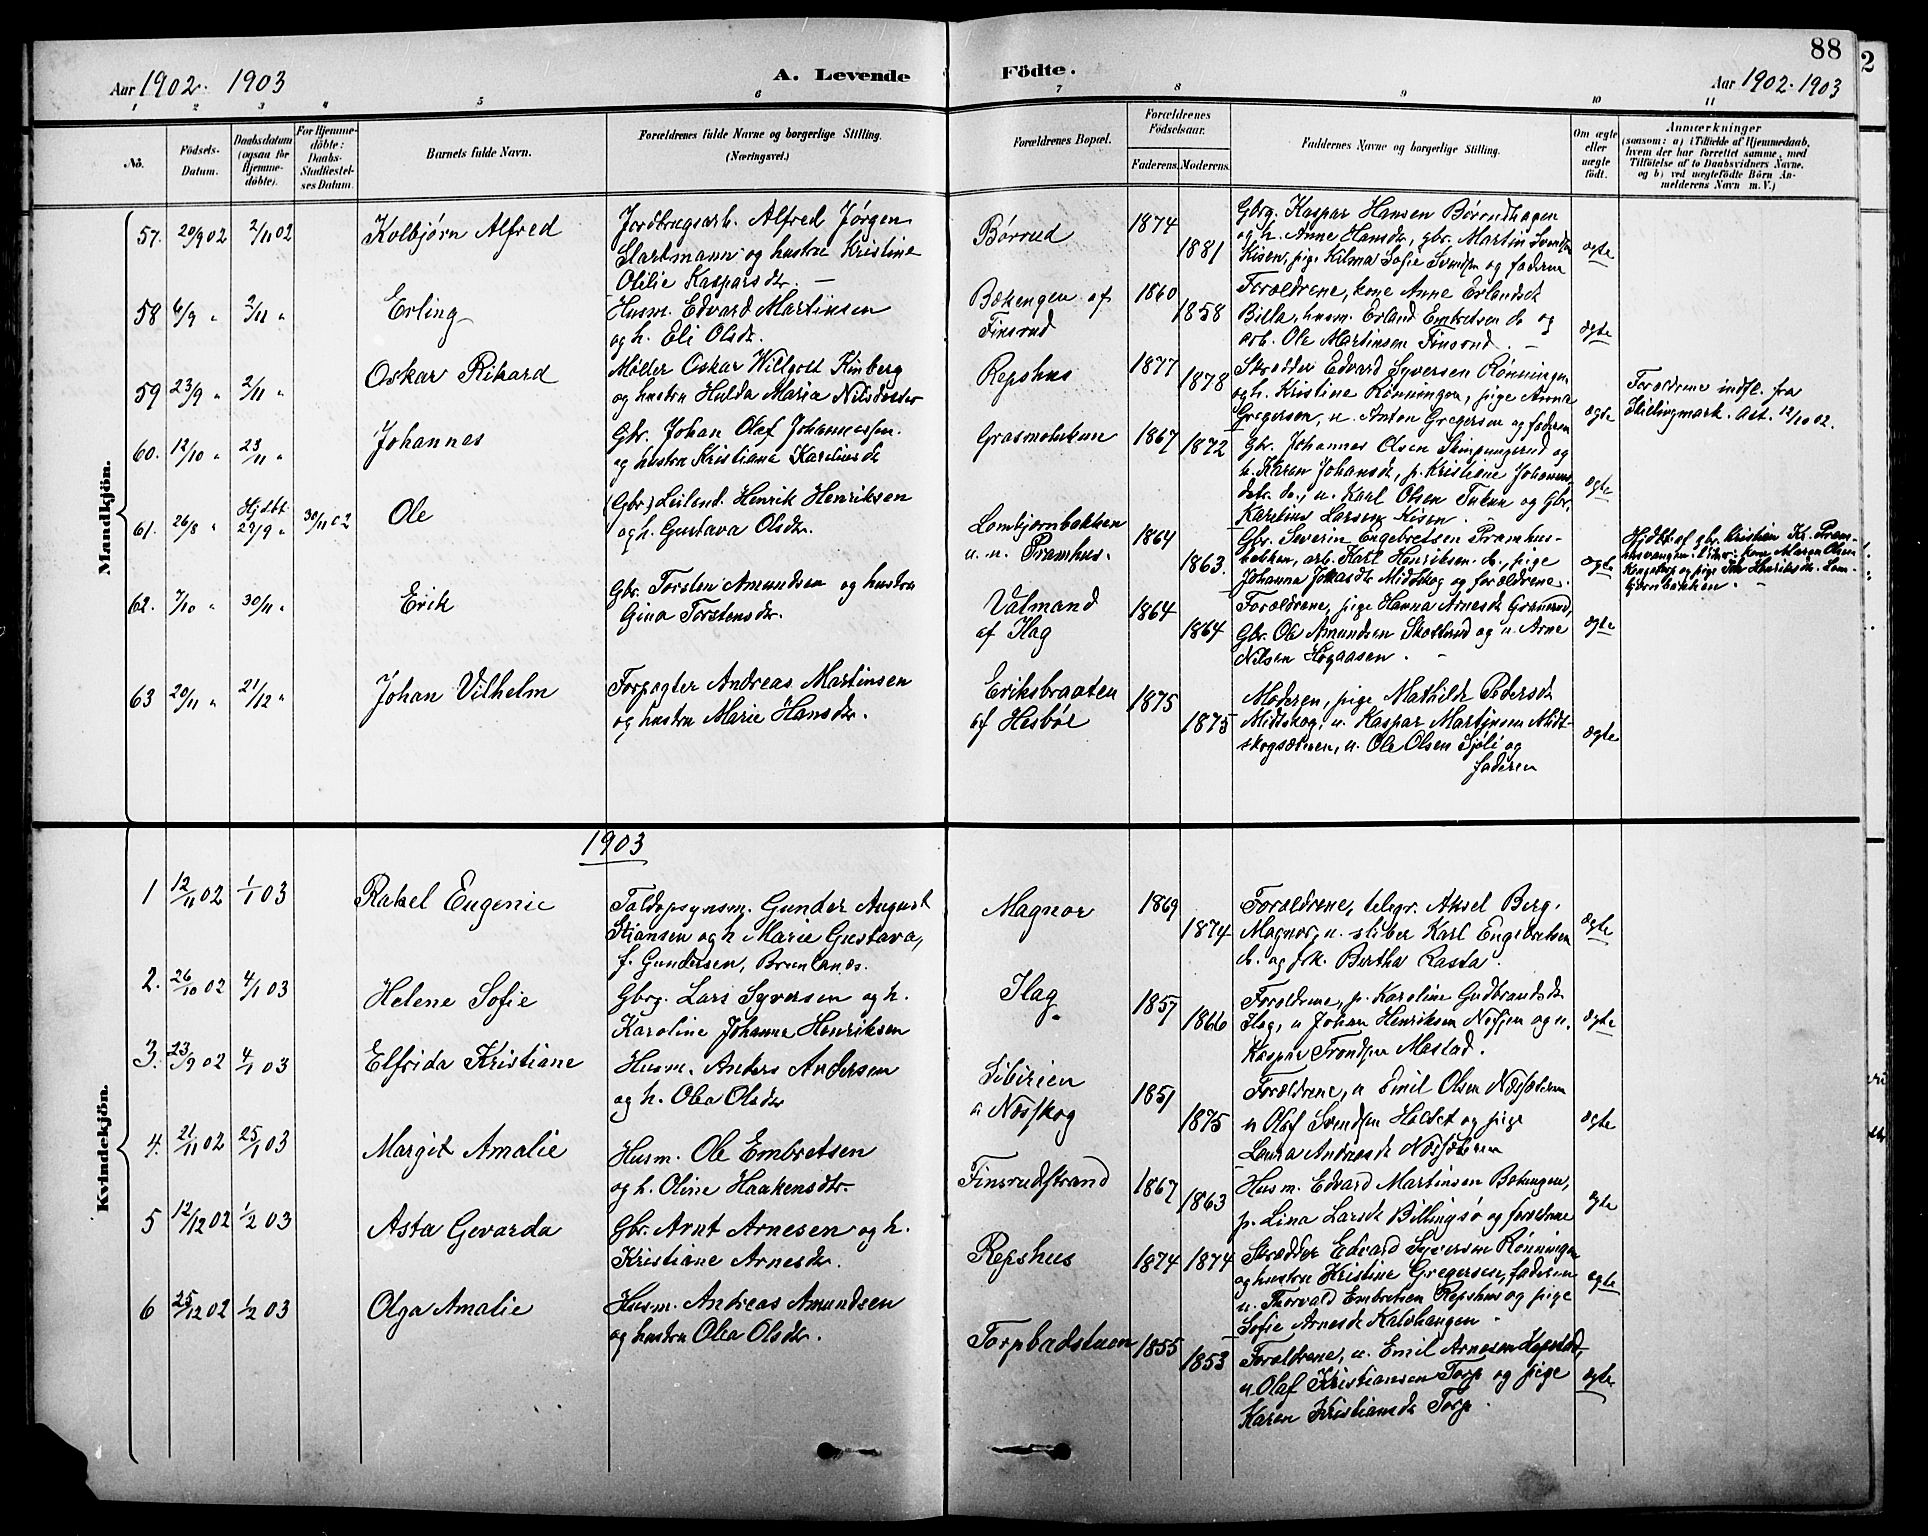 88
2
Aar 1902. 1903
A. Levende
Födte.
Aar 1902. 1903
1 2 3 4 5 6 7 8 9 10 11
No.
Födsels-
Datum.
Daabsdatum
(ogsaa for
Hjemme-
döbte).
For Hjemme-
döbte:
Daabs-
Stadfæstel-
ses Datum.
Barnets fulde Navn.
Forældrenes fulde Navne og borgerlige Stilling.
(Næringsvei.)
Forældrenes Bopæl.
Forældrenes
Födselsaar.
Faderens. Moderens.
Faddernes Navne og borgerlige Stilling.
Om ægte
eller
uægte
födt.
Anmærkninger
(saasom: a) i Tilfælde af Hjemmedaab,
hvem der har forrettet samme, med
Tilföielse af to Daabsvidners Navne.
og b) ved uægtefödte Börn An-
melderens Navn m. V.)
Mandkjön.
57. 20/9 02 2/11 02 Kolbjørn Alfred
Jordbrugsarb. Alfred Jørgen
Startmann og hustru Kristine
Otilie Kaspersdr. —
Børrud
1874
1881
Gbrg. Kaspar Hansen Børrudhagen
og h. Anne Hansdr, gbr. Martin Svendsen
Kisen, pige Hilma Sofie Svendsen og faderen
ægte
58 6/9 " 2/11 " Erling
Husm. Edvard Martinsen
og h. Eli Olsdr.
Bækengen af
Finsrud
1860
1858
Forældrene, kone Anne Erlandsdr
Billa, husm. Erland Embretsen do og
arb. Ole Martinsen Finsrud. —
ægte
59 23/9 " 2/11 " Oskar Rikard
Møller Oskar Willgott Kinberg
og hustru Hulda Maria Nilsdotter
Repshus
1877
1878
Skrædder Edvard Syversen Rønningen
og h. Kristine Rønningen, pige Anna
Gregersen, u. Anton Gregersen og faderen
ægte
Forældrene indfl. fra
Skillingmark. Att. 12/10 02.
60. 12/10 " 23/11 " Johannes
Gbr. Johan Olaf Johannessen
og hustru Kristiane Karelius dr
Grasmobekken
1867
1872
Gbr. Johannes Olsen
h. Karen Johansdr, p. Kristiane Johannes
datr. do, u. Karl Olsen og Gbr.
Karelius Larsen Kisen.
ægte
61. 26/8 " Hjdbt. 27/9 " 30/11 02 Ole
(Gbr.) Leilend. Henrik Henriksen
og h. Gustava Olsdr.
Lombjørnbakken
u. u. Pramhus.
1864
1863.
Gbr. Severin Engebretsen Pramhus-
bakken, arb. Karl Henriksen do, pige
Johanna Jonasdr Midtskog og forældrene.
ægte
Hjdbt. af gbr. Kristian Kr. Pram-
husvangen. Vidner: kone Maren Olsen
og pige Henriksdr. Lom-
bjørnbakken.
62. 7/10 " 30/11 " Erik
Gbr. Torsten Amundsen og hustru
Gina Torstensdr.
Vatmand
af Ilag
1864
1864
Forældrene, pige Hanna Arnesdr Granerud,
Gbr. Ole Amundsen Skotterud og u. Arne
Nilsen Høgaasen. —
ægte
63 20/11 " 21/12 " Johan Vilhelm
Forpagter Andreas Martinsen
og hustru Marie Hansdr.
Eriksbraaten
af Hesbøl
1875
1875
Moderen, pige Mathilde Pedersdr
Midtskog, u. Kaspar Martinsen Midt-
skogsæteren, u. Ole Olsen Sjøli og
faderen
ægte
1903
Kvindekjön.
1 12/11 02 1/1 03 Rakel Eugenie
Toldopsynsm. Gunder August
Stiansen og h Marie Gustava,
f. Gundersen, Brunlanæs.
Magnor
1869
1874
Forældrene, telegr. Aksel Berg,
Magnor, u. sliber Karl Engebretsen
do. og frk. Bertha Rasta.
ægte
2. 26/10 02 4/1 03 Helene Sofie
Gbrg. Lars Syversen og h.
Karoline Johanne Henriksen
Ilag
1857
1866
Forældrene, p. Karoline Gudbrandsdr
Ilag, u Johan Henriksen og u.
Kaspar Trondsen Mastad.
ægte
3. 23/9 02 4/1 03 Elfrida Kristiane
Husm. Anders Andersen
og h. Olea Olsdr
Sibirien
u Næsskog
1851
1875
Forældrene, u Emil Olsen Næssæteren
u Olaf Svendsen Holdet og pige
Laura Andreasdr Næssæteren
ægte
4. 21/11 02 25/1 03 Margit Amalie
Husm. Ole Embretsen
og h. Oline Haakensdtr.
Finsrudstrand
1867
1863
Husm. Edvard Martinsen Bækengen,
p. Lina Larsdr Billingsø og forældrene
ægte
5 12/12 02 1/2 03 Asta Gevarda
Gbr. Arnt Arnesen og h.
Kristiane Arnesdr.
Repshus
1874
1874
Skrædder Edvard Syversen Rønningen
og hustru Kristine Gregersen, faderen
u. Thorvald Embretsen Repshus og pige
Sofie Arnesdr Kalshaugen.
ægte
6 25/12 02 1/2 03 Olga Amalie
Husm. Andreas Amundsen
og hustru Olea Olsdr.
Torpbadstuen
1855
1853
Forældrene, u. Emil Arnesen
u. Olaf Kristiansen Torp og pige
Karen Kristiansdr Torp.
ægte